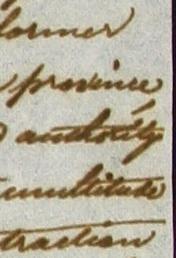 former
province
authority
multitude
traction